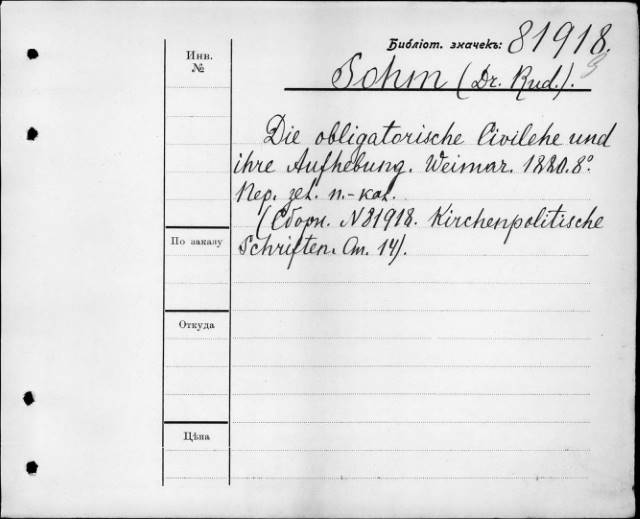 Библіот. значекъ: 81918.
9
Инв. №
Sohm (Dr. Rud.).
Die obligatorische Civilehe und
ihre Aufhebung. Weimar. 1880. 8°.
(Сборн. N 81918. Kirchenpolitische
Schriften. Ст. 14).
По заказу
Откуда
Цѣна